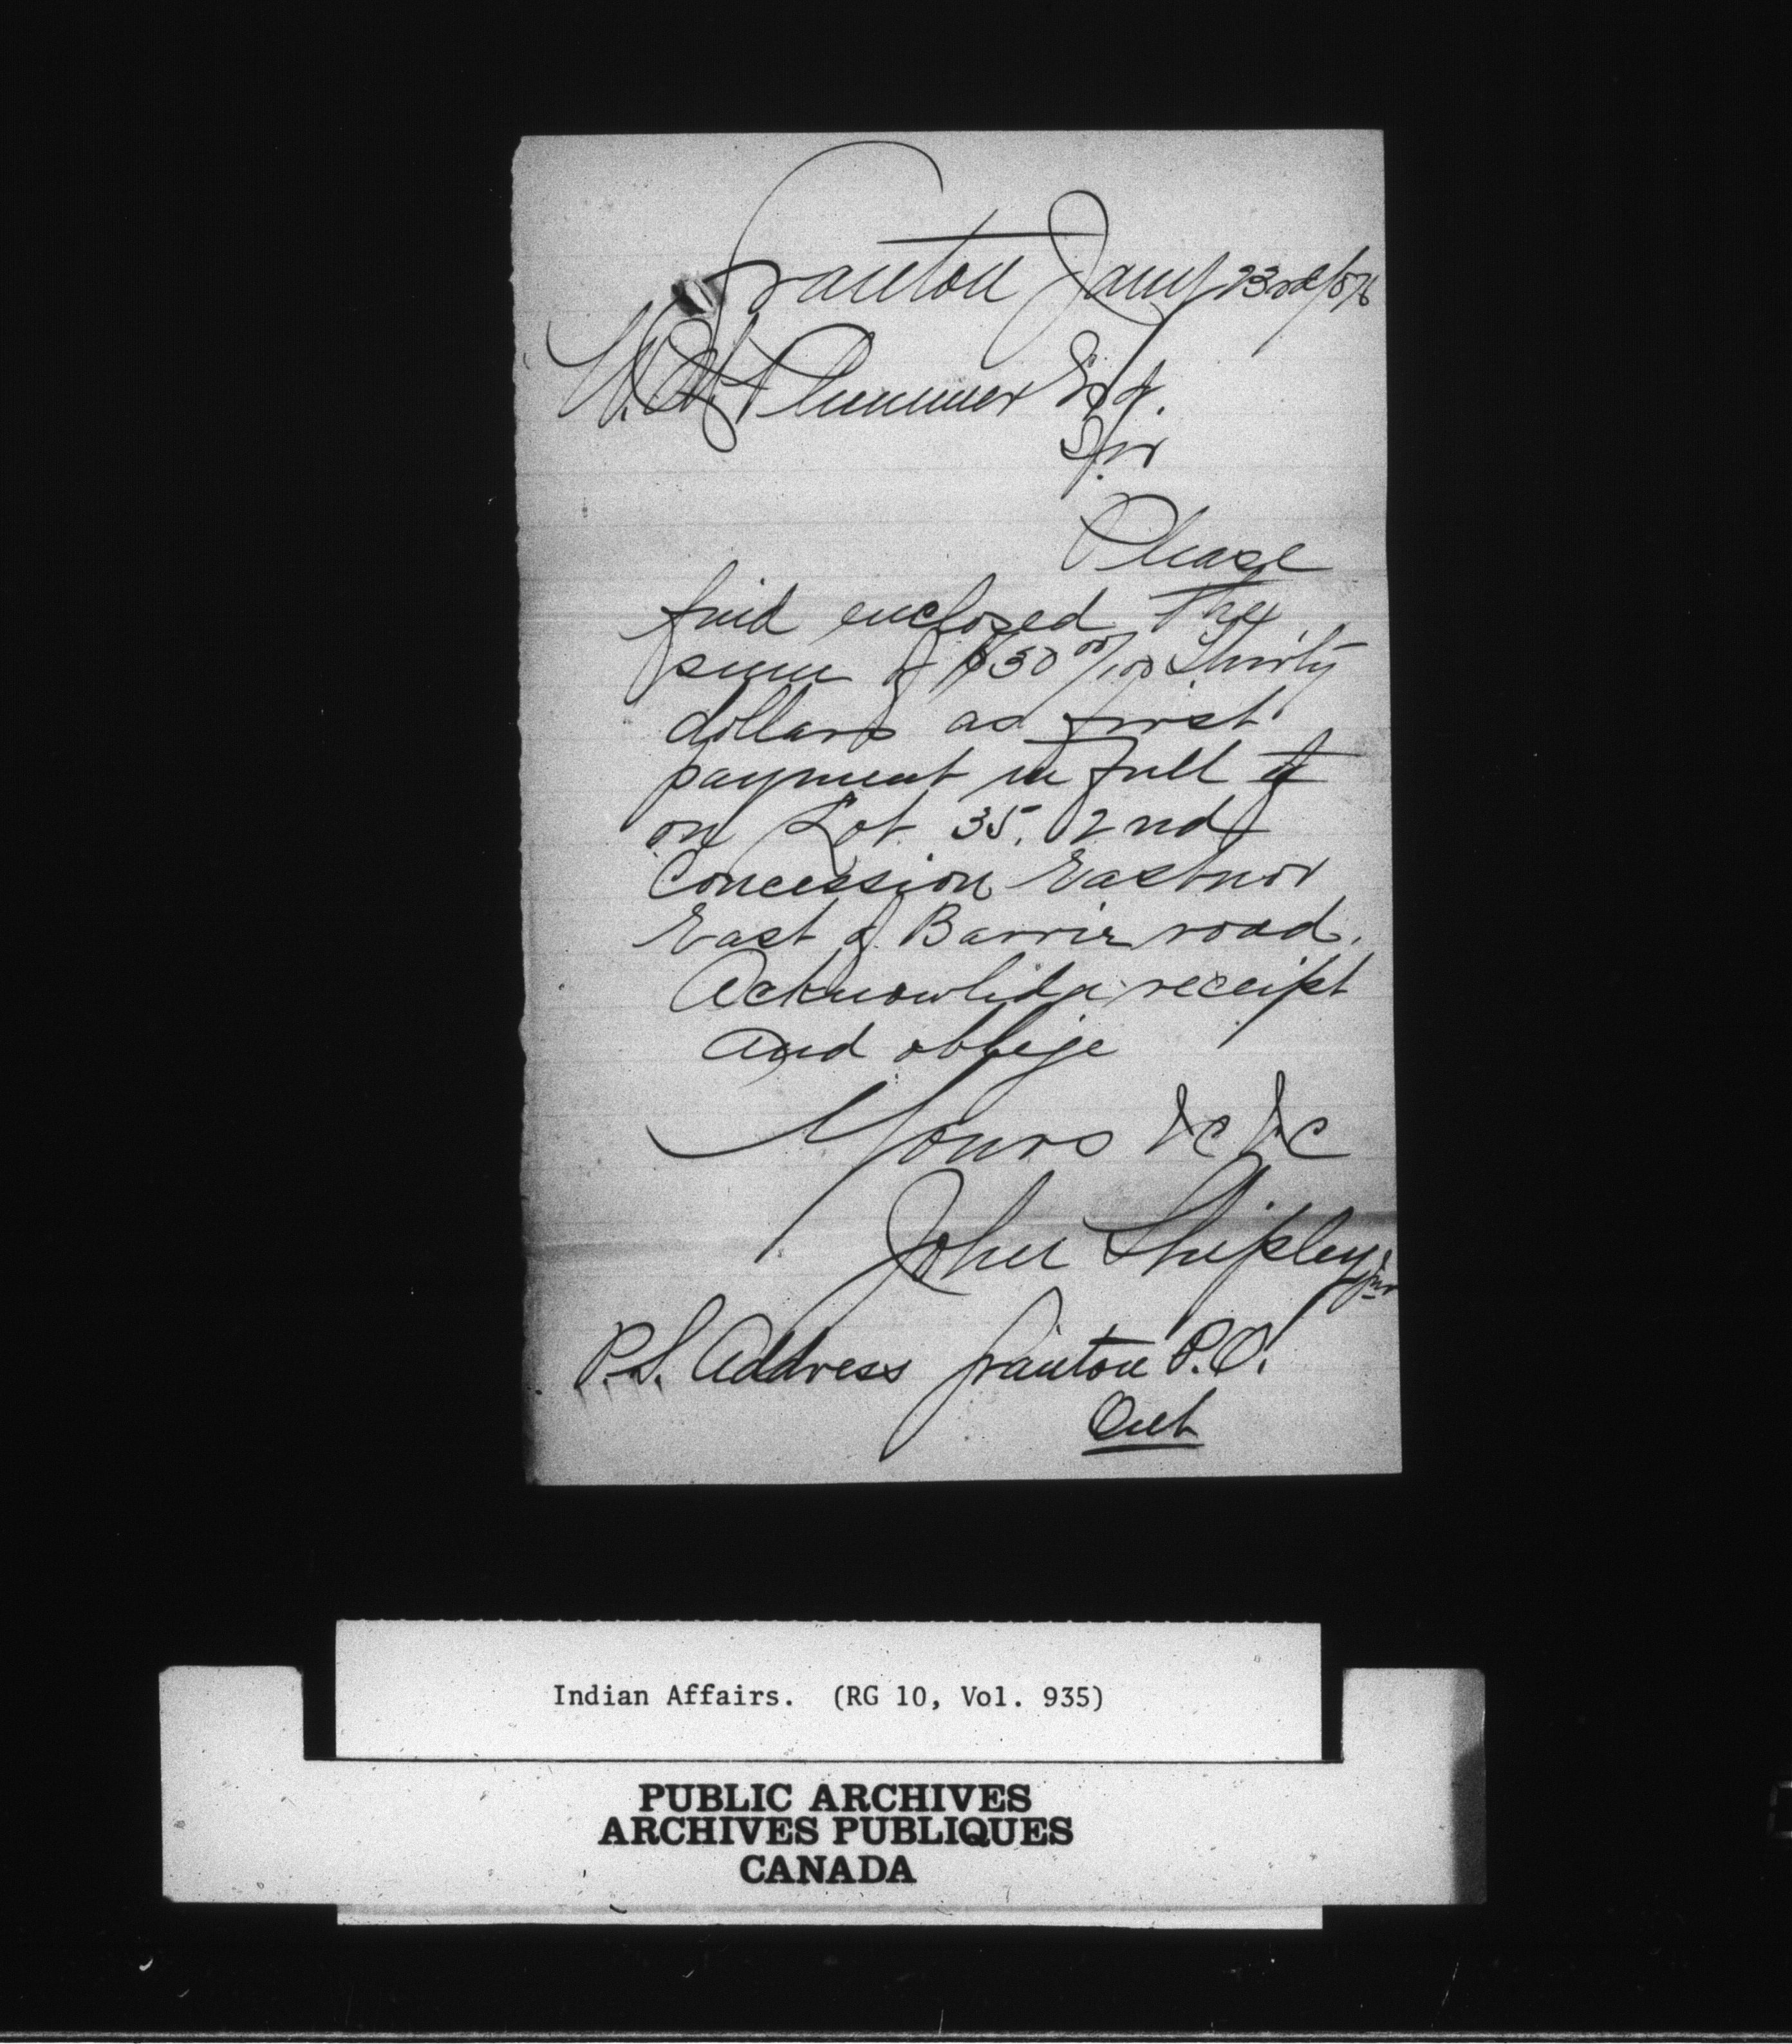 Granton Jany 23rd/878
W. Plummer Esq.
Sir
Please
find enclosed the
sum of $30 00/100 Thirty
dollars as first
payment in full of
on Lot 35, 2nd
Concession Eastnor
East of Barrier road.
Acknowlidge receipt
and oblige
Yours &c &c
John Shipley jnr
P.S. Address Granton P.O.
Ont
Indian Affairs. (RG 10, Vol. 935)
PUBLIC ARCHIVES
ARCHIVES PUBLIQUES
CANADA